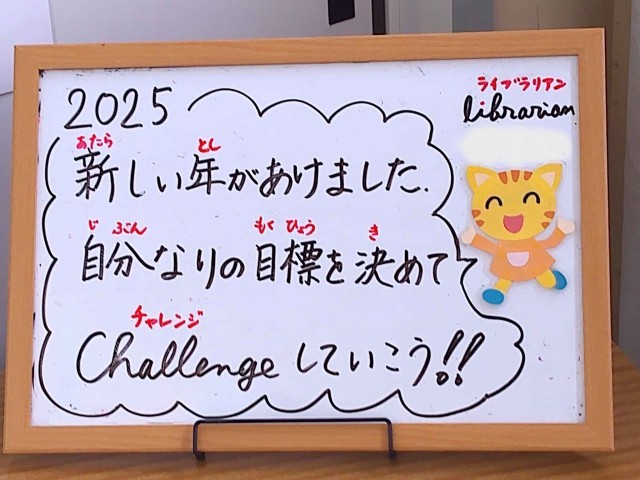 ライブラリアン
librarian
2025
あたら とし
新しい年があけました.
じ ぶん もく ひょう き
自分なりの目標を決めて
チャレンジ
Challengeしていこう!!